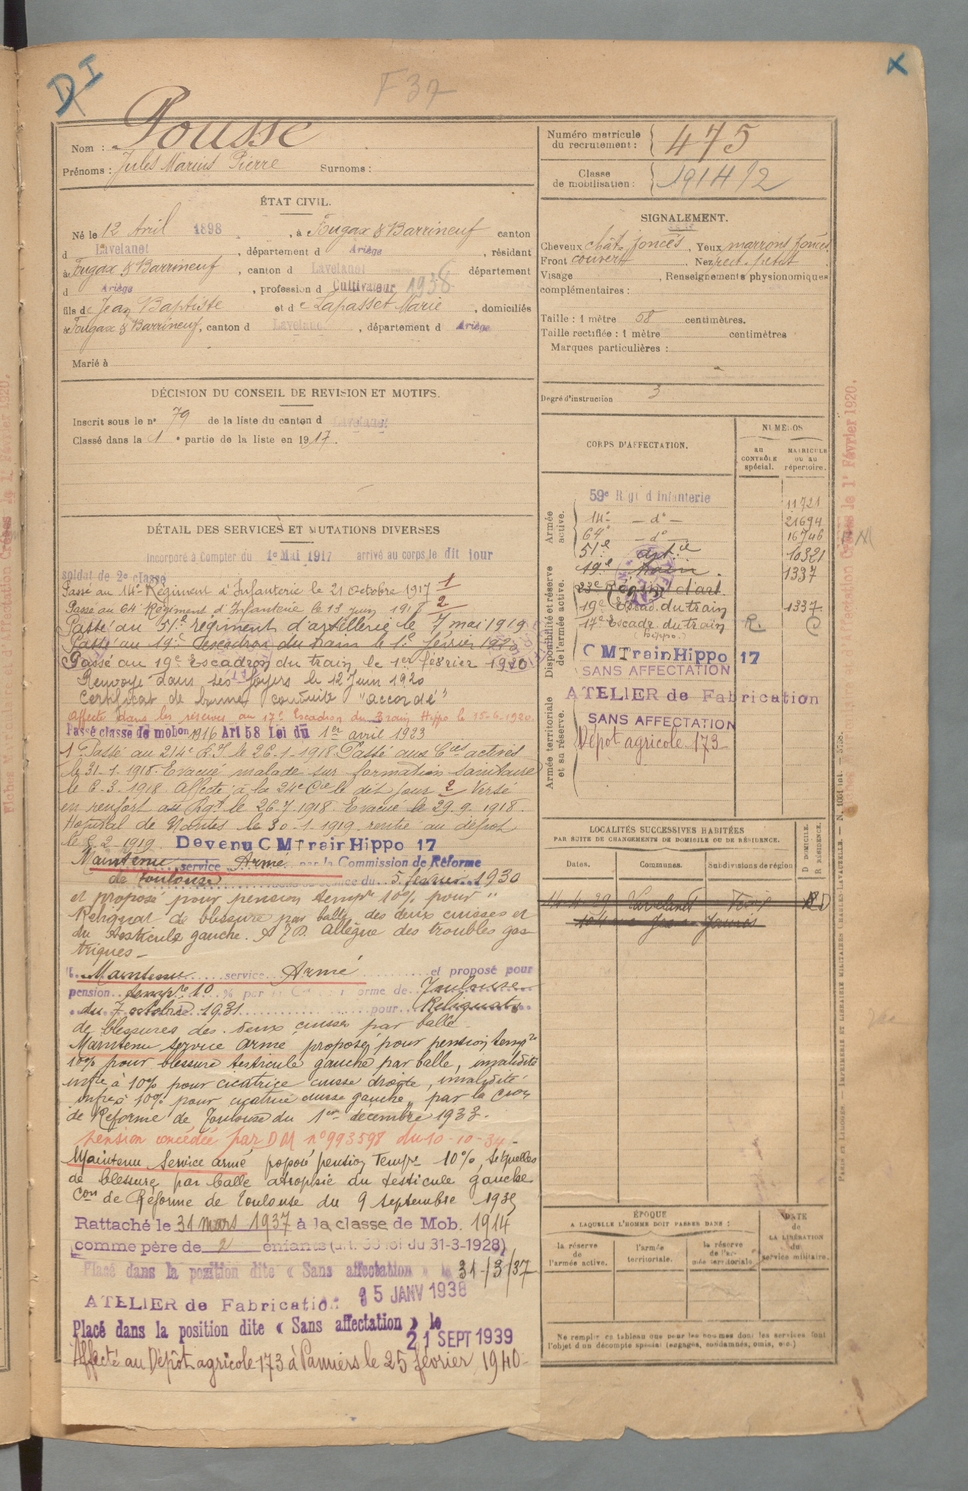 DI
F 37
X
Nom : Pousse
Prénoms : Jules Marius Pierre Surnoms :
Numéro matricule du recrutement : 475
Classe de mobilisation : 1914/2
ÉTAT CIVIL.
Né le 12 Avril 1898, à Fougax & Barrineuf canton
d Lavelanet, département d Ariège, résidant
à Fougax & Barrineuf, canton d Lavelanet département
d Ariège, profession d Cultivateur 1938
fils de Jean Baptiste et de Lapasset Marie, domiciliés
à Fougax & Barrineuf, canton d Lavelanet, département d Ariège
Marié à
SIGNALEMENT.
Cheveux chât. foncés, Yeux marrons foncés
Front couvert, Nez rect. petit
Visage Renseignements physionomiques
complémentaires :
Taille : 1 mètre 58 centimètres.
Taille rectifiée : 1 mètre centimètres
Marques particulières :
Degré d'instruction 3
DÉCISION DU CONSEIL DE REVISION ET MOTIFS.
Inscrit sous le n° 79 de la liste du canton d Lavelanet
Classé dans la 1e partie de la liste en 1917.
DÉTAIL DES SERVICES ET MUTATIONS DIVERSES
Incorporé à Compter du 1e Mai 1917 arrivé au corps le dit jour
soldat de 2e classe
Passé au 14e Régiment d'Infanterie le 21 octobre 1917 1
Passé au 64e Régiment d'Infanterie le 13 juin 1918 2
Passé au 51e régiment d'artillerie le 7 mai 1919
Passé au 19e Escadron du train le 1er février 1920
Passé au 19e Escadron du train le 1er février 1920
Renvoyé dans ses foyers le 12 Juin 1920
Certificat de bonne conduite "accordé"
Affecté dans les réserves au 17e Escadron du Train Hippo le 15-6-1920
Passé classe de mobon 1916 Art 58 Loi du 1er avril 1923
1° Passé au 214e R.I le 26.1.1918 Passé aux Cies actives
le 31-1-1918. Evacué malade sur formation sanitaire
le 6-3-1918 Affecté à la 24e Cie le dit jour 2 Versé
en renfort au Rgt le 26.7.1918 Evacué le 29.9.1918.
Hopital de Nantes le 30-1-1919 rentré au dépot
le 8.2.1919. Devenu C M Train Hippo 17
Maintenu service Armé par la Commission de Réforme
de Toulouse du 5 février 1930
et proposé pour pension tempre 10% pour "
Reliquat de blessure par balle des deux cuisses et
du testicule gauche. Allègue des troubles gas
triques -
Maintenu service Armé et proposé pour
pension tempre 10 % par la C de Réforme de Toulouse
du 7 octobre 1931 pour Reliquats
de blessures des deux cuisses par balle.
Maintenu service armé proposé pour pension tempre
10% pour blessure testicule gauche par balle, invalidité
infre à 10% pour cicatrice cuisse droite, invalidité
infre à 10% pour cicatrice cuisse gauche, par la Cion
de Réforme de Toulouse du 1er décembre 1933.
pension concédée par DM n° 993598 du 10-10-34 -
Maintenu Service armé proposé pension Tempre 10%, séquelles
de blessure par balle atrophie du testicule gauche
Con de Réforme de Toulouse du 9 septembre 1935
Rattaché le 31 mars 1937 à la classe de Mob. 1914
comme père de 2 enfants (art. 58 loi du 31-3-1928)
Placé dans la position dite « Sans affectation » le 31-/3/37
ATELIER de Fabrication 15 JANV 1938
Placé dans la position dite « Sans affectation » le
21 SEPT 1939
Affecté au Dépôt agricole 173 à Pamiers le 25 février 1940 -
CORPS D'AFFECTATION.
NUMÉROS
AU CONTRÔLE spécial.
MATRICULE OU AU répertoire.
Armée active.
59e Rgt d'Infanterie 11721
14e - d° - 21694
64e - d° - 16746
51e d'art ie 10321
19e train 1337
Disponibilité et réserve de l'armée active.
19e Escad. du train 1337
17e Escadr. du train R.
(hippo)
C M Train Hippo 17
SANS AFFECTATION
ATELIER de Fabrication
SANS AFFECTATION
Armée territoriale et sa réserve.
Dépot agricole 173
LOCALITÉS SUCCESSIVES HABITÉES
PAR SUITE DE CHANGEMENTS DE DOMICILE OU DE RÉSIDENCE.
Dates. Communes. Subdivisions de région D. DOMICILE. R. RÉSIDENCE.
14-4-39 Lavelanet Foix D
104 Jean Jaurès
ÉPOQUE
A LAQUELLE L'HOMME DOIT PASSER DANS :
DATE de LA LIBÉRATION du service militaire.
la réserve de l'armée active.
l'armée territoriale.
la réserve de l'armée territoriale
Ne remplir ce tableau que pour les hommes dont les services font
l'objet d'un décompte spécial (engagés, condamnés, omis, etc.)
PARIS ET LIMOGES. — IMPRIMERIE ET LIBRAIRIE MILITAIRES CHARLES-LAVAUZELLE.